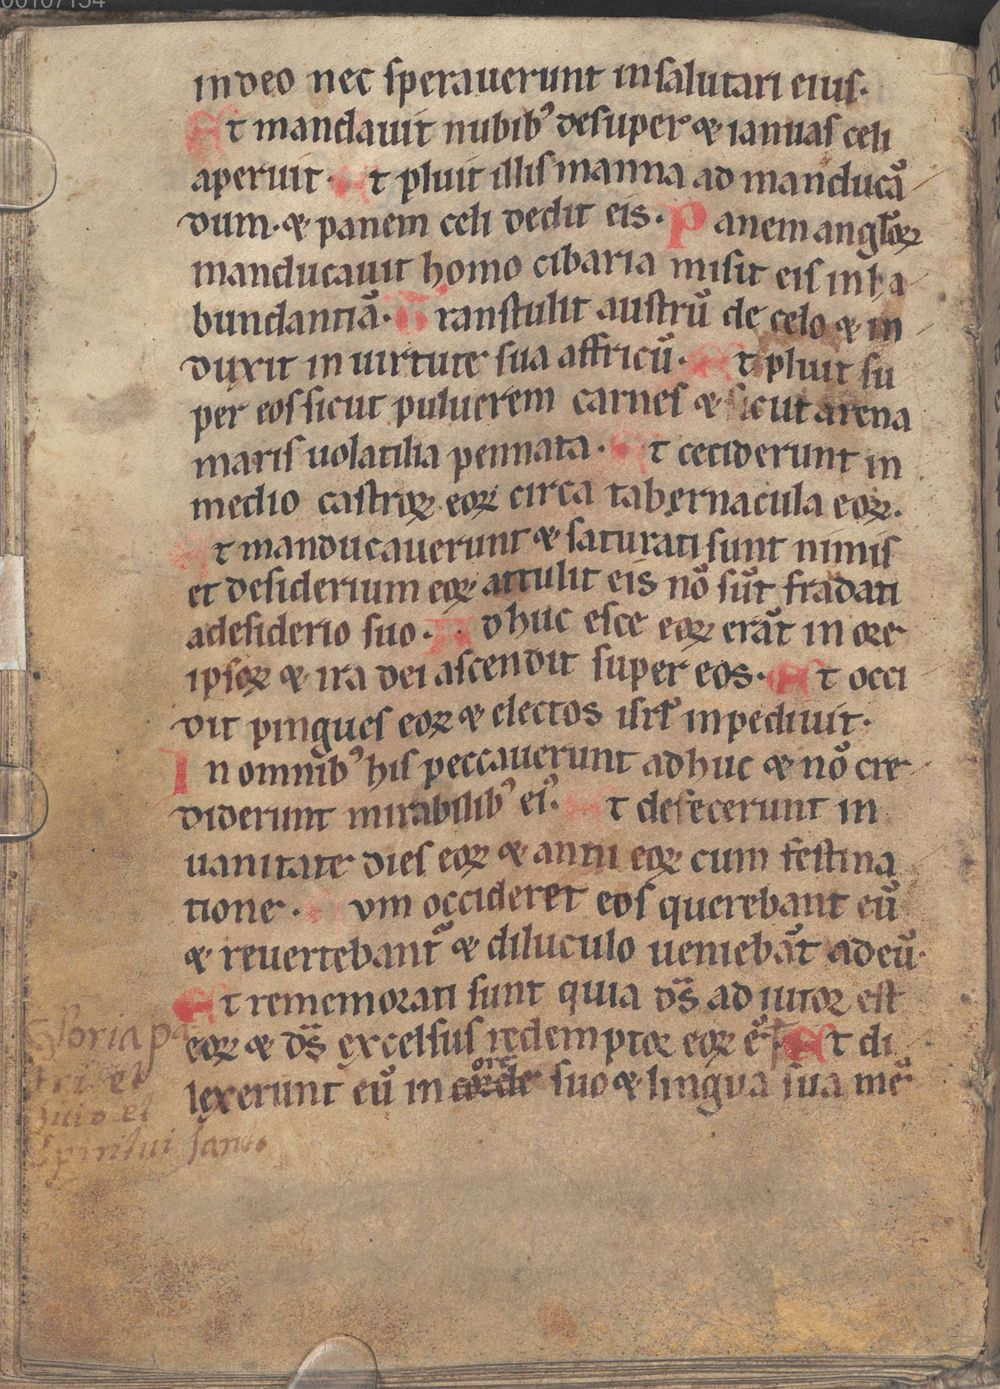 00107154
in deo nec sperauerunt in salutari eius·
Et mandauit nubib⁹ desuper & ianuas celi
aperuit· Et pluit illis manna ad manducā
dum· & panem celi dedit eis· Panem angl̄oꝝ
manducauit homo cibaria misit eis in ha
bundantiā· Transtulit austrū de celo & in
duxit in uirtute sua affricū· Et pluit su
per eos sicut puluerem carnes & sicut arena
maris uolatilia pennata· Et ceciderunt in
medio castroꝝ eoꝝ circa tabernacula eoꝝ·
Et manducauerunt & saturati sunt nimis
et desiderium eoꝝ attulit eis nō sūt fradati
a desiderio suo· Adhuc esce eoꝝ erāt in ore
ipsoꝝ & ira dei ascendit super eos· Et occi
dit pingues eoꝝ & electos isrł inpediuit·
In omnib⁹ his peccauerunt adhuc & nō cre
diderunt mirabilib⁹ ei⁹· Et defecerunt in
uanitate dies eoꝝ & anni eoꝝ cum festina
tione· Cum occideret eos querebant eū
& reuertebant᷑ & diluculo ueniebāt ad eū·
Et rememorati sunt quia ds̄ adiutor est
eoꝝ & ds̄ excelsus redemptor eoꝝ ē· Et di
lexerunt eū in corde ore suo & lingua sua mē
Gloria pa
tri et
filio et
Spiritui santo